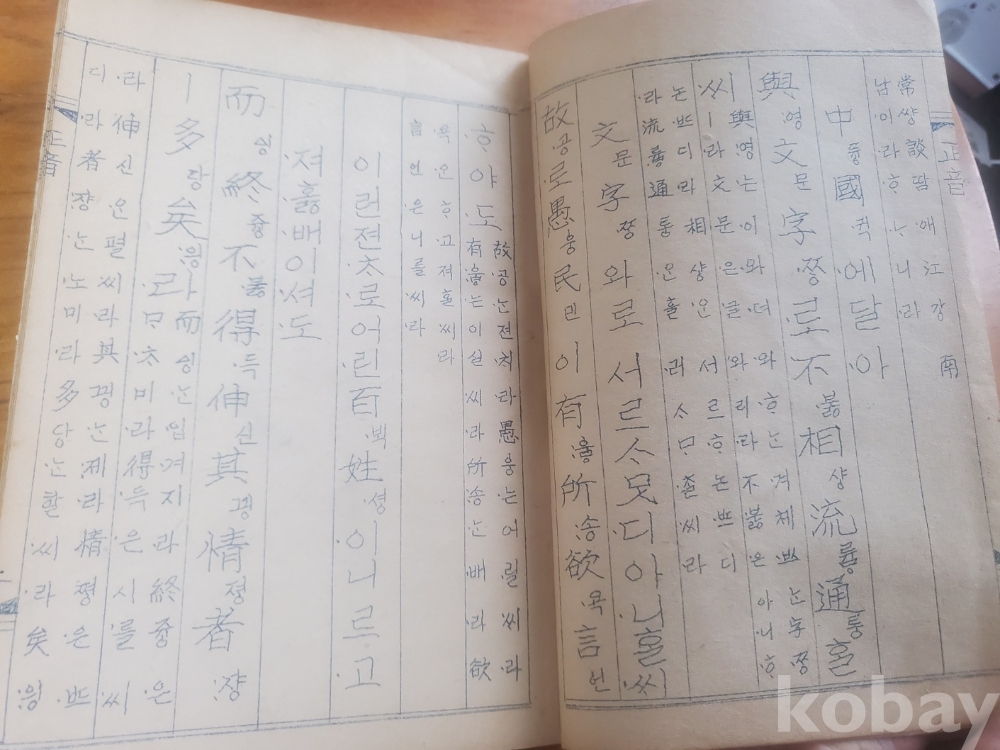 正音
常쌍談땀애江강南
남이라ᄒᆞᄂᆞ니라
中듕國귁에달아
與영文문字ᄍᆞᆼ로不부ᇙ相샹流류ᇢ通통ᄒᆞᆯ
씨
與영는이와뎌와ᄒᆞ는겨체ᄡᅳ는字ᄍᆞᆼ
ㅣ라文문은글와리라不부ᇙ은아니ᄒᆞ
논ᄠᅳ디라相샹ᄋᆞᆫ서르ᄒᆞ논ᄠᅳ디
라流류ᇢ通통ᄋᆞᆫ흘러ᄉᆞᄆᆞᄎᆞᆯ씨라
文문字ᄍᆞᆼ와로서르ᄉᆞᄆᆞᆺ디아니ᄒᆞᆯ씨
故공로愚웅民민이有우ᇢ所송欲욕言언
ᄒᆞ야도
故공ᄂᆞᆫ젼ᄎᆡ라愚웅는어릴씨라
有우ᇢ는이실씨라所송ᄂᆞᆫ배라欲
욕ᄋᆞᆫᄒᆞ고져ᄒᆞᆯ씨라
言언은니를씨라
이런젼ᄎᆞ로어린百ᄇᆡᆨ姓셩이니르고
져호ᇙ배이셔도
而ᅀᅵᆼ終즁不부ᇙ得득伸신其끵情쪙者쟝
ㅣ多당矣ᅌᅴᆼ라
而ᅀᅵᆼᄂᆞᆫ입겨지라終즁은
ᄆᆞᄎᆞ미라得득은시를씨
라伸신ᄋᆞᆫ펼씨라其끵ᄂᆞᆫ제라情쪙은ᄠᅳ
디라者쟝ᄂᆞᆫ노미라多당ᄂᆞᆫ할씨라矣ᅌᅴᆼ
正音
kobay